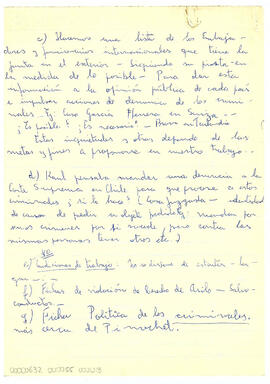 c) Hacemos una lista de los Embaja-
dores y funcionarios internacionales que tiene la
junta en el exterior - siguiendo su pista en
la medida de lo posible - Para dar esta
información a la opinión pública de cada país
e impulsar acciones de denuncia de los crimi-
nales. Ej. Caso García Herrera en Suiza.
¿Es posible? ¿Es necesario?
Estas inquietudes y otras depende de las
metas y fines a proponerse en nuestro trabajo..
d) Raúl pensaba mandar una denuncia a la
Corte Suprema en Chile para que procese a estos
criminales; si lo hace? (Cosa juzgada -
de causa de pedir u objeto pedido) mandar por
unos crímenes por si sucede, pero contra las
mismas personas tener otros etc.)
e) Condiciones de trabajo: No se dispone de estantes -
f) Fichas de violación de Derecho de Asilo - Salvo-
conductos -
g) Fichar Política de los criminales.
más cerca de Pinochet.
00000632 000055 000013